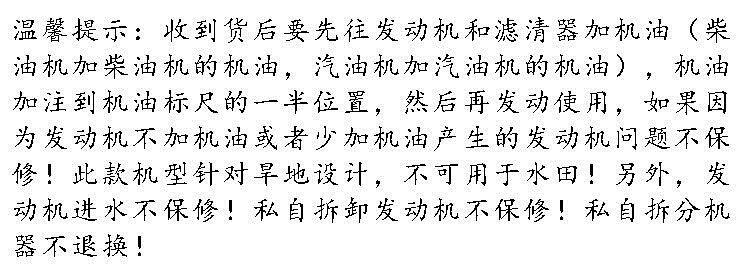 温馨提示：收到货后要先往发动机和滤清器加机油（柴
油机加柴油机的机油，汽油机加汽油机的机油），机油
加注到机油标尺的一半位置，然后再发动使用，如果因
为发动机不加机油或者少加机油产生的发动机问题不保
修！此款机型针对旱地设计，不可用于水田！另外，发
动机进水不保修！私自拆卸发动机不保修！私自拆分机
器不退换！